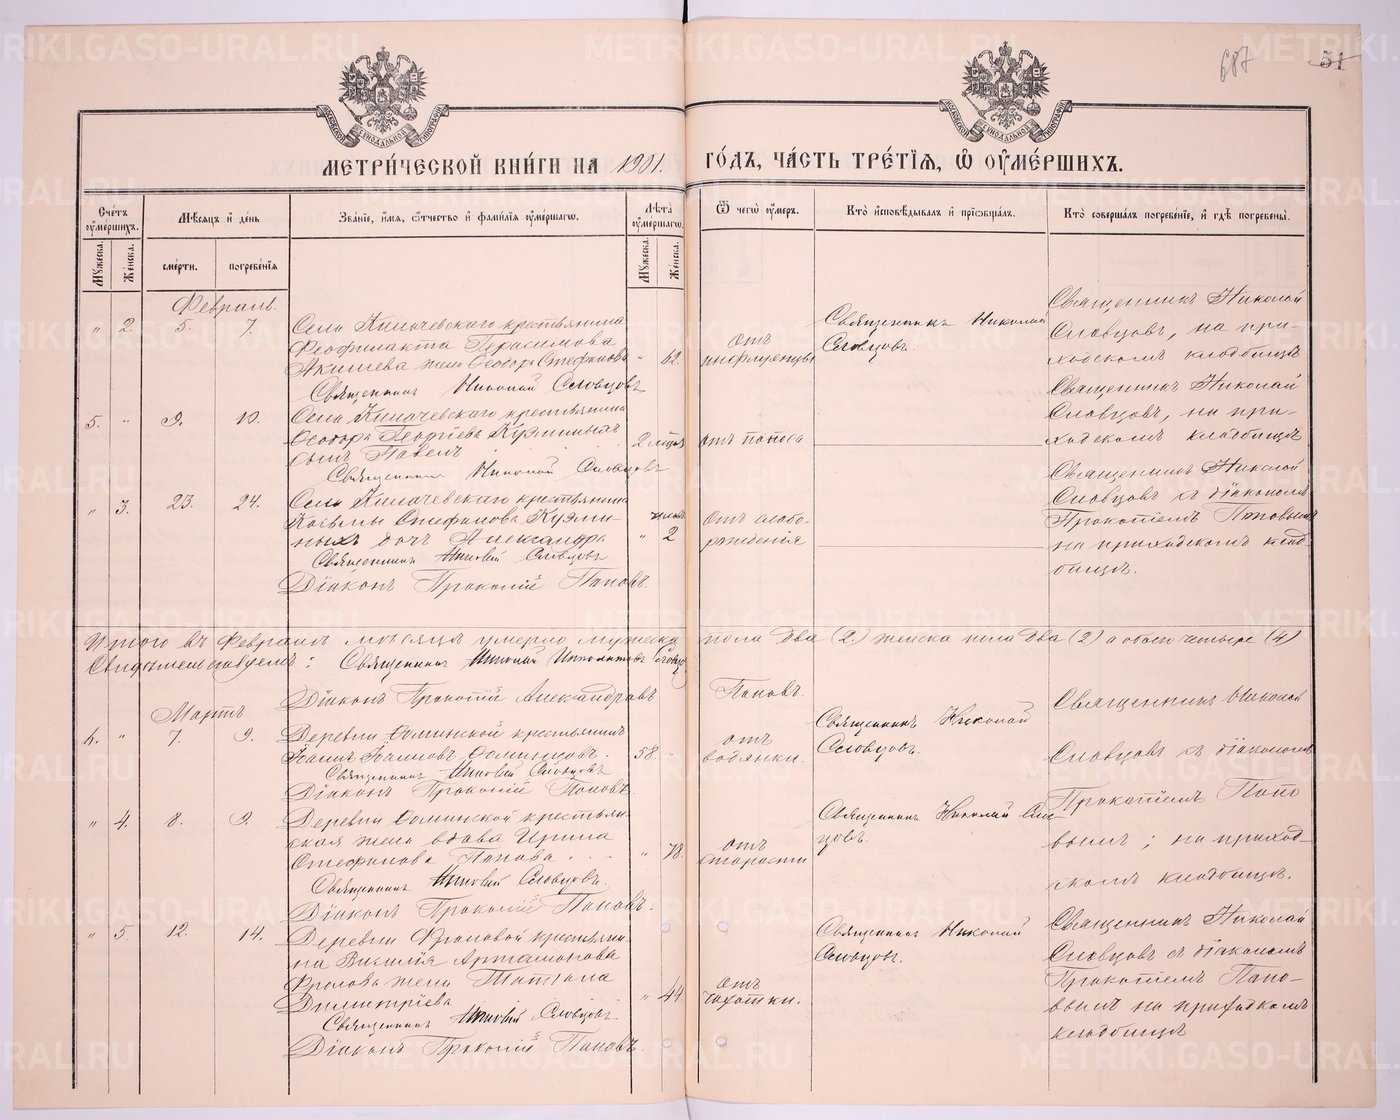 687
51
МЕТРИ́ЧЕСКОЙ КНИ́ГИ НА 1901. ГО́ДЪ, ЧА́СТЬ ТРЕ́ТІЯ, Ѡ ОУ҆МЕ́РШИХЪ.
Сче́тъ оу҆ме́ршихъ.
Мѣ́сяцъ и де́нь
Зва́ніе, и́мя, ѻ҆́тчество и фами́лія оу҆ме́ршагѡ.
Лѣ́та оу҆ме́ршагѡ.
Ѿ чегѡ̀ оу҆́меръ.
Кто̀ и҆сповѣ́дывалъ и прїѡбща́лъ.
Кто̀ соверша́лъ погребе́ніе, и гдѣ̀ погребены̀.
Му́жеска.
Же́нска.
сме́рти.
погребе́нія
Му́жеска.
Же́нска.
Февраль.
" 2. 5. 7.
Села Килачевскаго крестьянина
Феофилакта Герасимова
Акишева жена Ѳеодора Стефанова
" 62
Священникъ Николай Словцовъ
отъ
инфлуенцы
Священникъ Николай
Словцовъ.
Священникъ Николай
Словцовъ, на при-
ходскомъ кладбищѣ
5. " 9. 10.
Села Килачевскаго крестьянина
Ѳеодора Георгіева Кузминыхъ
сынъ Павелъ
2 мѣсяца
Священникъ Николай Словцовъ
отъ поноса
Священникъ Николай
Словцовъ, на при-
ходскомъ кладбищѣ
" 3. 23. 24.
Села Килачевскаго крестьянина
Козьмы Стефанова Кузми-
ныхъ дочь Александра
" 2
Священникъ Николай Словцовъ
Діаконъ Прокопій Поповъ.
Отъ слабо-
рожденія
Священникъ Николай
Словцовъ съ діакономъ
Прокопіемъ Поповымъ
на приходскомъ клад-
бищѣ.
Итого въ Февралѣ мѣсяцѣ умерло мужеска пола два (2) женска пола два (2) а обоего четыре (4)
Свидѣтельствуемъ: Священникъ Николай Словцовъ
Діаконъ Прокопій Александровъ Поповъ.
Мартъ
6. " 7. 9.
Деревни Фоминской крестьянинъ
Іоаннъ Іоанновъ Фоминцовъ.
58. "
Священникъ Николай Словцовъ
Діаконъ Прокопій Поповъ.
отъ
водянки.
Священникъ Николай
Словцовъ.
Священникъ Николай
Словцовъ съ діакономъ
Прокопіемъ Попо
вымъ; на приход-
скомъ кладбищѣ.
" 4. 8. 9.
Деревни Фоминской крестьян-
ская жена вдова Ирина
Стефанова Попова . . .
" 78.
Священникъ Николай Словцовъ.
Діаконъ Прокопій Поповъ.
отъ
старости
Священникъ Николай Сло-
вцовъ.
" 5. 12. 14.
Деревни Фроловой крестьяни-
на Василія Артамонова
Фролова жена Татіана
Димитріева
" 44
Священникъ Николай Словцовъ
Діаконъ Прокопій Поповъ.
Отъ
чахотки.
Священникъ Николай
Словцовъ.
Священникъ Николай
Словцовъ съ діакономъ
Прокопіемъ Попо-
вымъ на приходскомъ
кладбищѣ
METRIKI.GASO-URAL.RU